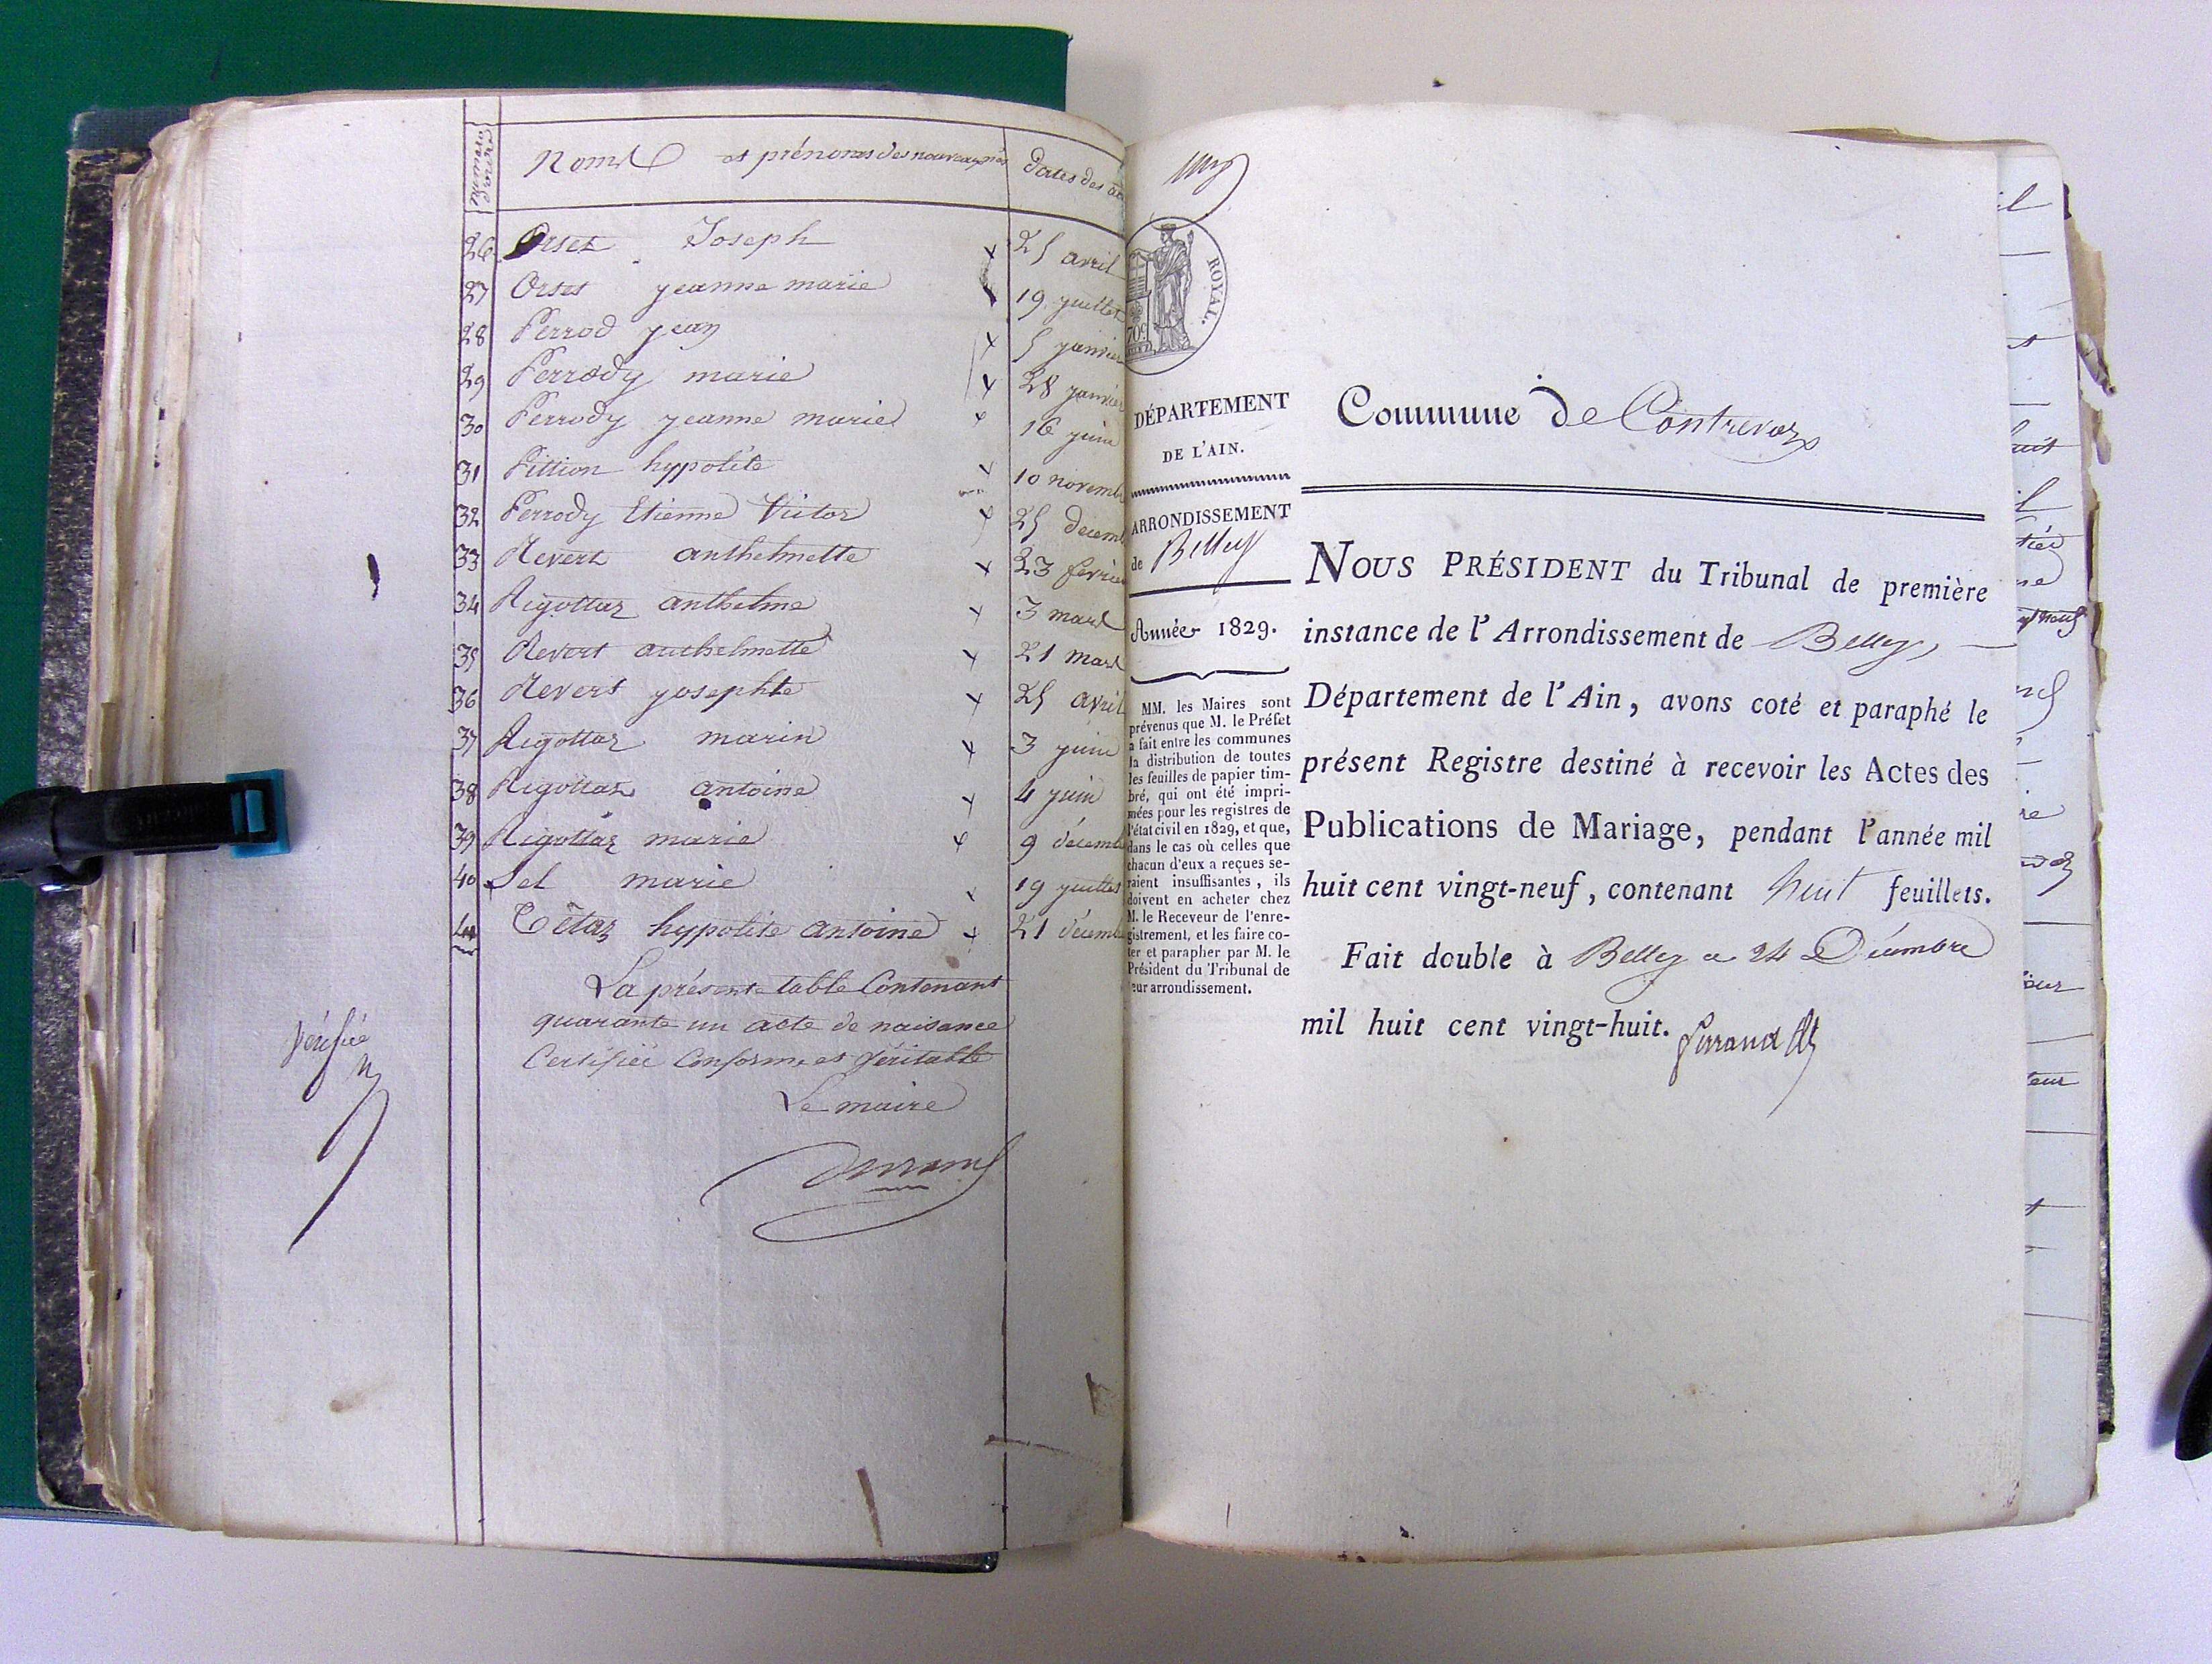 Numéro d'ordre Noms et prénoms des nouveaux nés Dates des
26 Orset Joseph x 25 avril
27 Orset jeanne marie 19 juillet
28 Perrod jean x 5 janvier
29 Perrody marie x 28 janvier
30 Perrody jeanne marie x 16 juin
31 Pittion hypolite x 10 novemb
32 Perrody Etienne Victor x 25 décemb
33 Revert anthelmette x 23 fevrie
34 Rigottaz anthelme x 3 mars
35 Revert anthelmette x 21 mars
36 Revert josephte x 25 avril
37 Rigottaz marin x 3 juin
38 Rigottaz antoine x 4 juin
39 Rigottaz marie x 9 décemb
40 Sel marie x 19 juillet
41 Tétaz hypolite antoine x 21 décemb
La présente table Contenant
quarante un acte de naisance
Certifiée Conforme et Véritable
Le maire
Vérifiée
ROYAL.
70c.
DÉPARTEMENT
DE L'AIN.
ARRONDISSEMENT
de Belley
Année 1829.
MM. les Maires sont
prévenus que M. le Préfet
a fait entre les communes
la distribution de toutes
les feuilles de papier tim-
bré, qui ont été impri-
mées pour les registres de
l'état civil en 1829, et que,
dans le cas où celles que
chacun d'eux a reçues se-
raient insuffisantes, ils
doivent en acheter chez
M. le Receveur de l'enre-
gistrement, et les faire co-
ter et parapher par M. le
Président du Tribunal de
leur arrondissement.
Commune de Contrevoz
NOUS PRÉSIDENT du Tribunal de première
instance de l'Arrondissement de Belley,
Département de l'Ain, avons coté et paraphé le
présent Registre destiné à recevoir les Actes des
Publications de Mariage, pendant l'année mil
huit cent vingt-neuf, contenant huit feuillets.
Fait double à Belley ce 24 Décembre
mil huit cent vingt-huit.